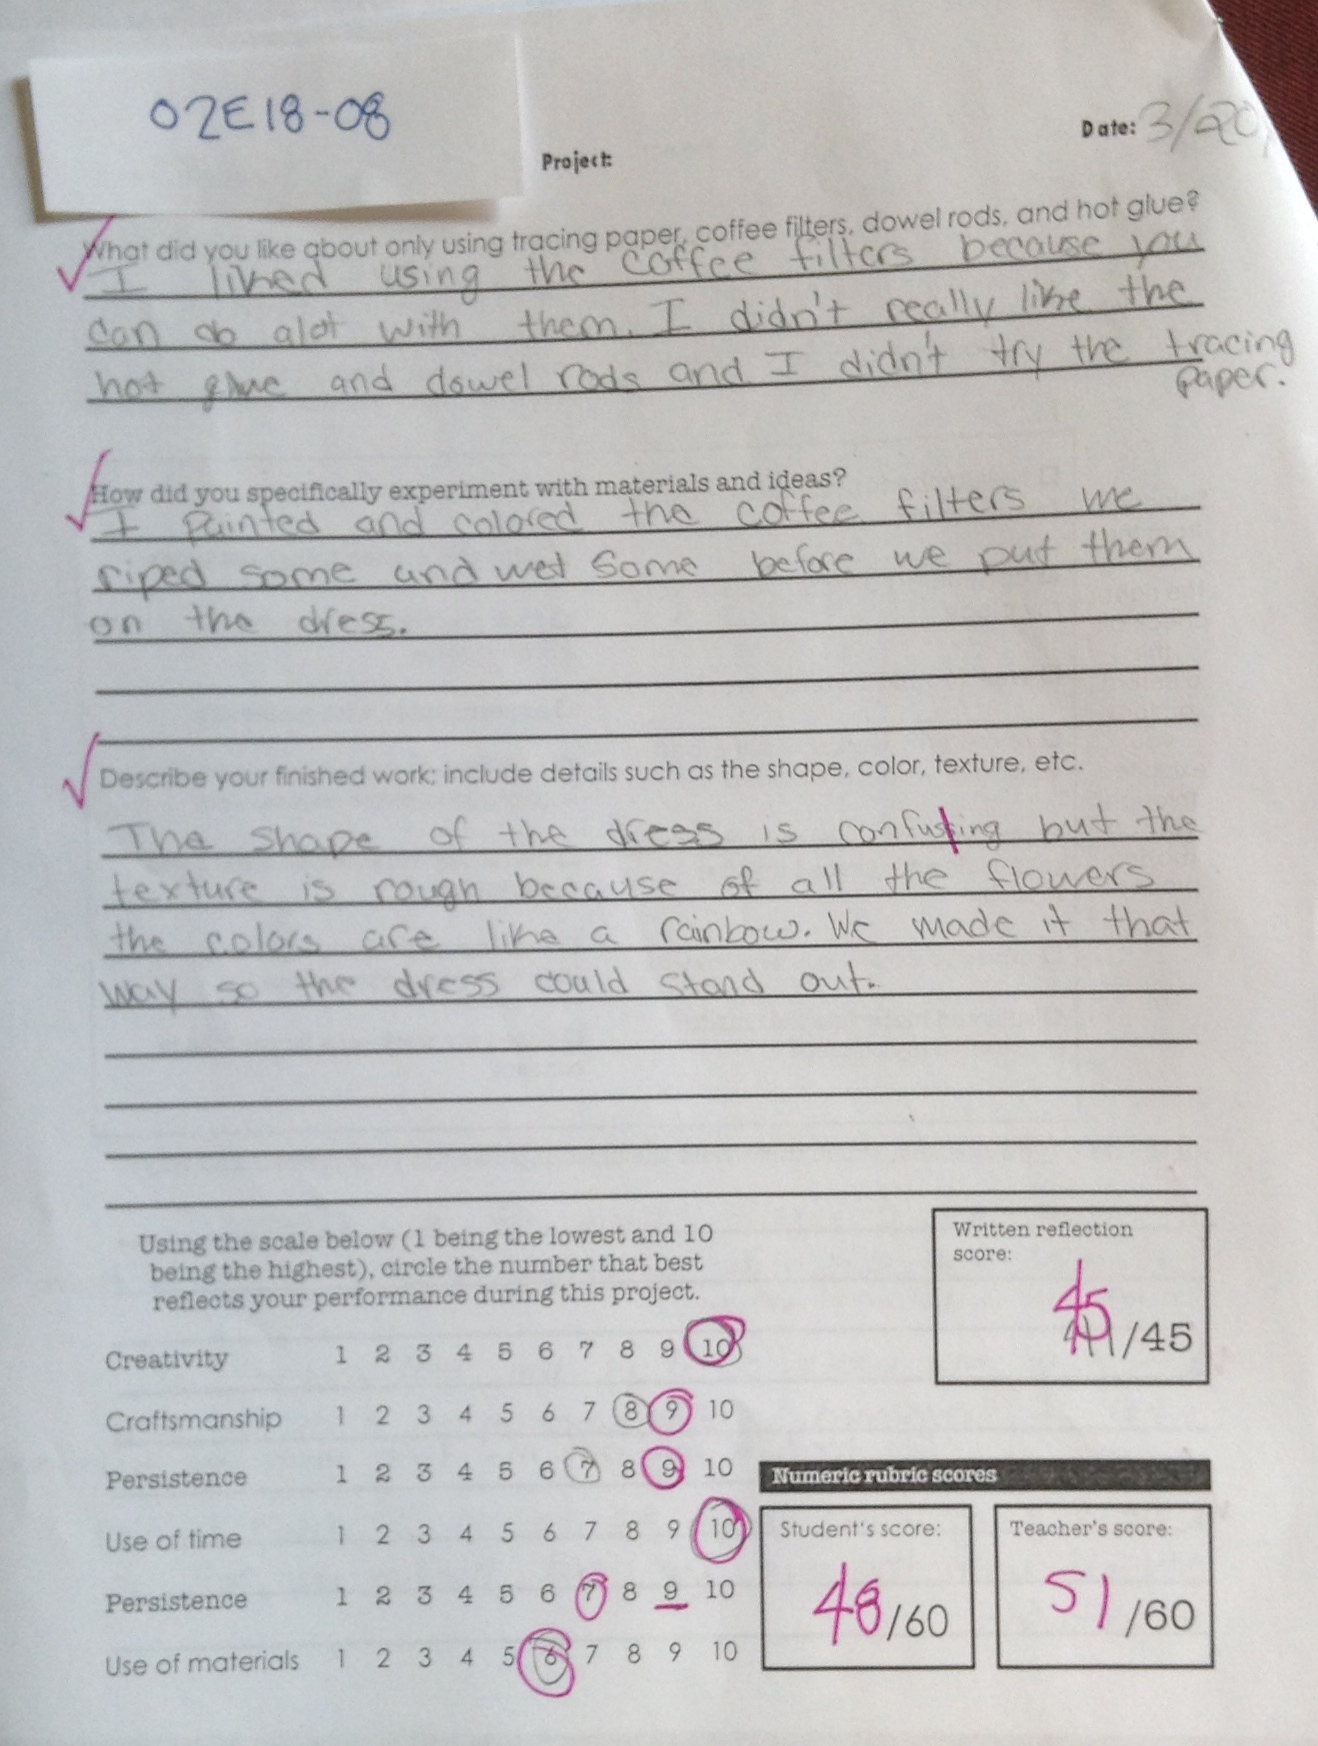 02E18-08
Date: 3/20
Project:
What did you like about only using tracing paper, coffee filters, dowel rods, and hot glue?
I liked using the coffee filters because you
can do alot with them. I didn't really like the
hot glue and dowel rods and I didn't try the tracing
paper.
How did you specifically experiment with materials and ideas?
I painted and colored the coffee filters we
riped some and wet some before we put them
on the dress.
Describe your finished work: include details such as the shape, color, texture, etc.
The shape of the dress is confusing but the
texture is rough because of all the flowers
the colors are like a rainbow. We made it that
way so the dress could stand out.
Using the scale below (1 being the lowest and 10
being the highest), circle the number that best
reflects your performance during this project.
Written reflection
score:
45 /45
Creativity 1 2 3 4 5 6 7 8 9 10
Craftsmanship 1 2 3 4 5 6 7 8 9 10
Persistence 1 2 3 4 5 6 7 8 9 10
Numeric rubric scores
Use of time 1 2 3 4 5 6 7 8 9 10
Student's score:
48/60
Teacher's score:
51/60
Persistence 1 2 3 4 5 6 7 8 9 10
Use of materials 1 2 3 4 5 6 7 8 9 10